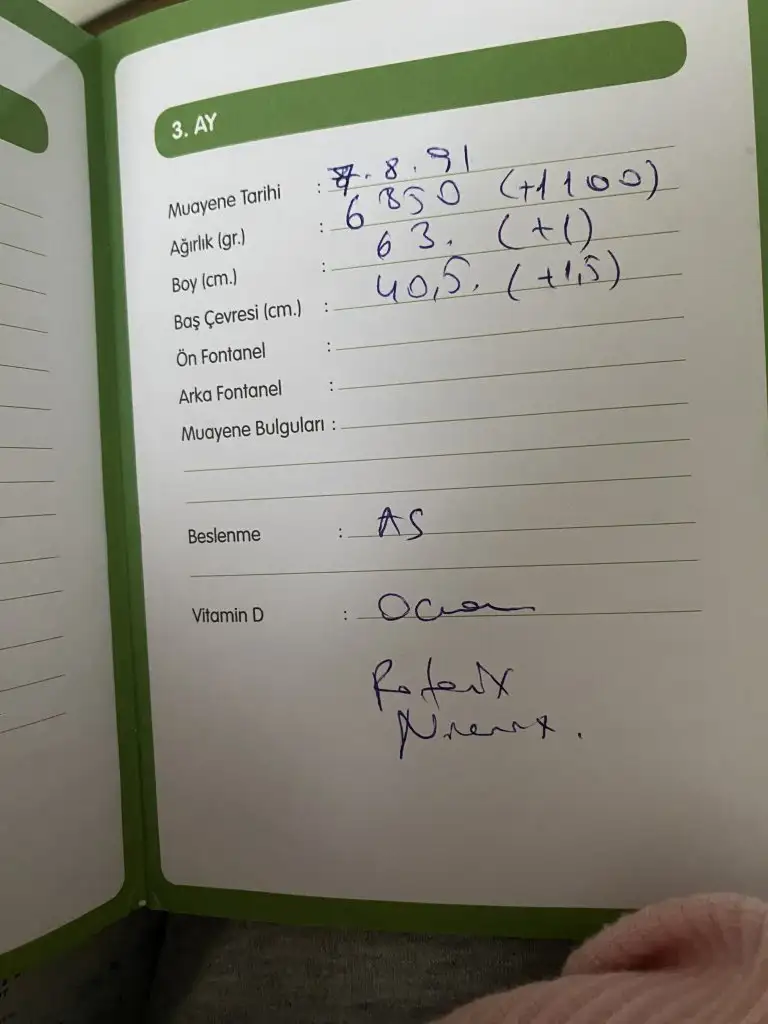 3. AY
Muayene Tarihi : 7.8.91
Ağırlık (gr.) : 6850 (+1100)
Boy (cm.) : 63. (+1)
Baş Çevresi (cm.) : 40,5. (+1,5)
Ön Fontanel :
Arka Fontanel :
Muayene Bulguları :
Beslenme : AS
Vitamin D :